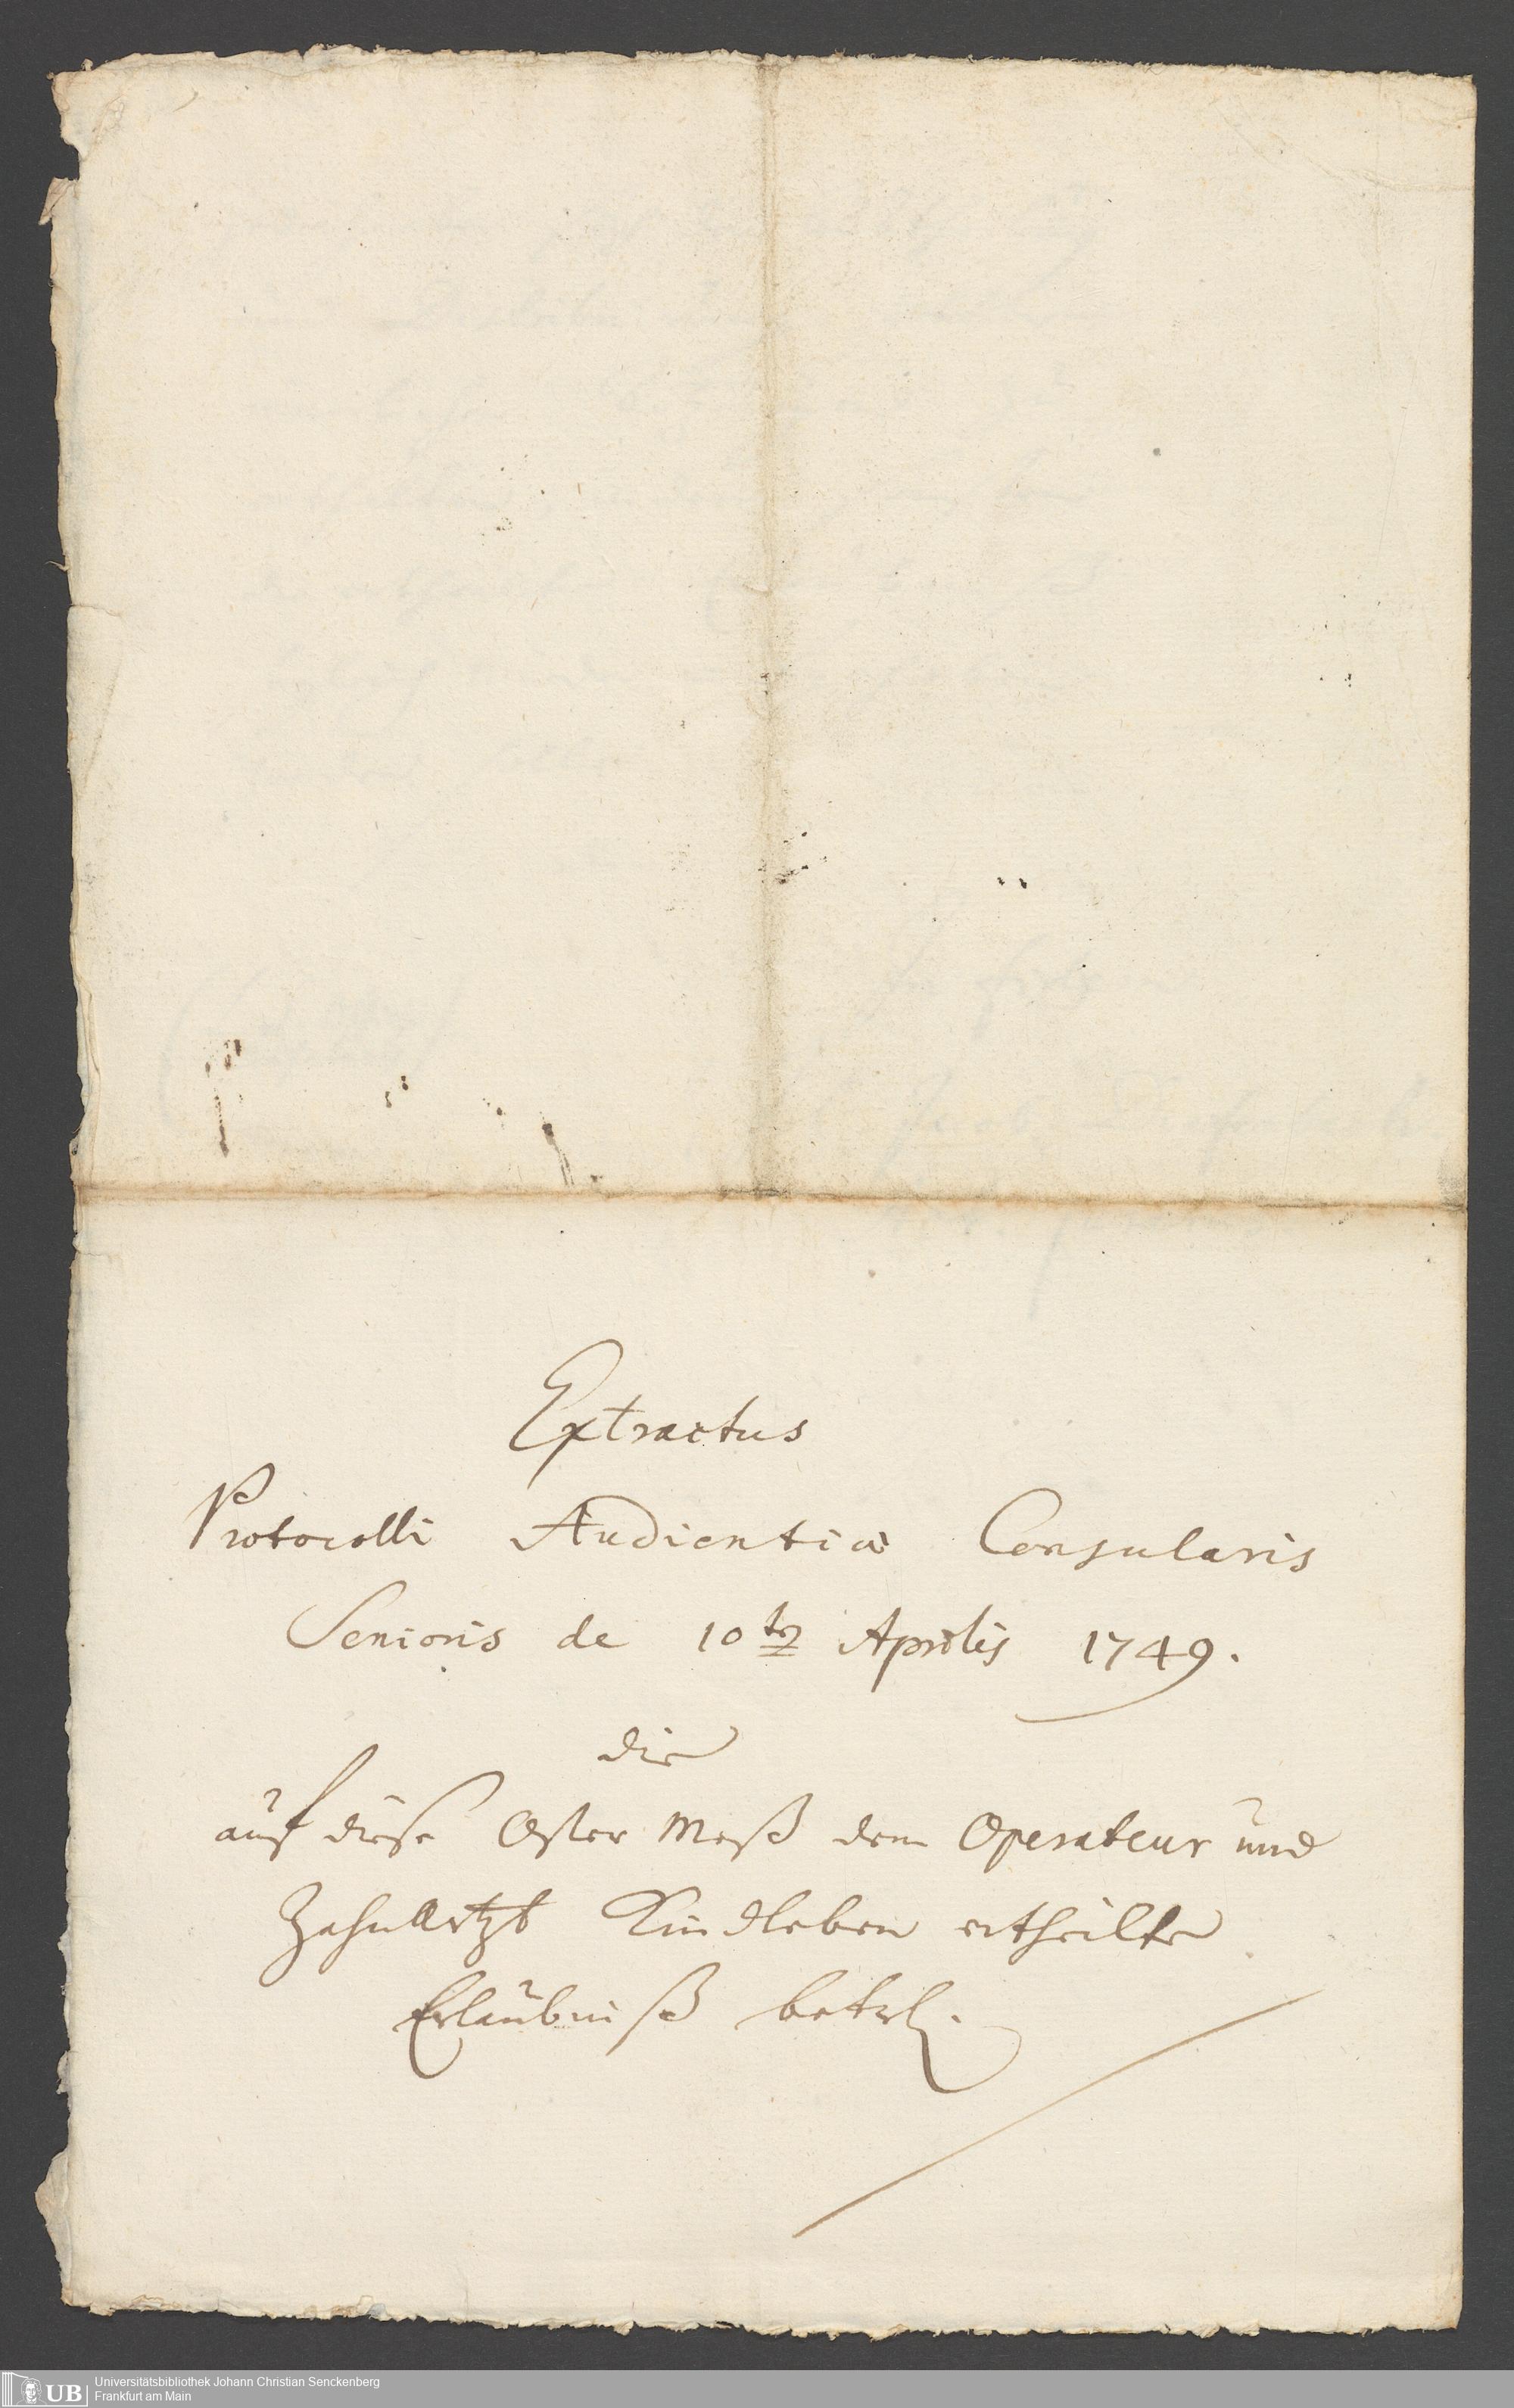 Extractus
Protocolli Audientiæ Consularis
Senioris de 10ten Aprilis 1749.
die
auf diese Oster Meß dem Operateur und
Zahnartzt Kindleben ertheilte
Erlaubniß betrl.
UB Universitätsbibliothek Johann Christian Senckenberg
Frankfurt am Main